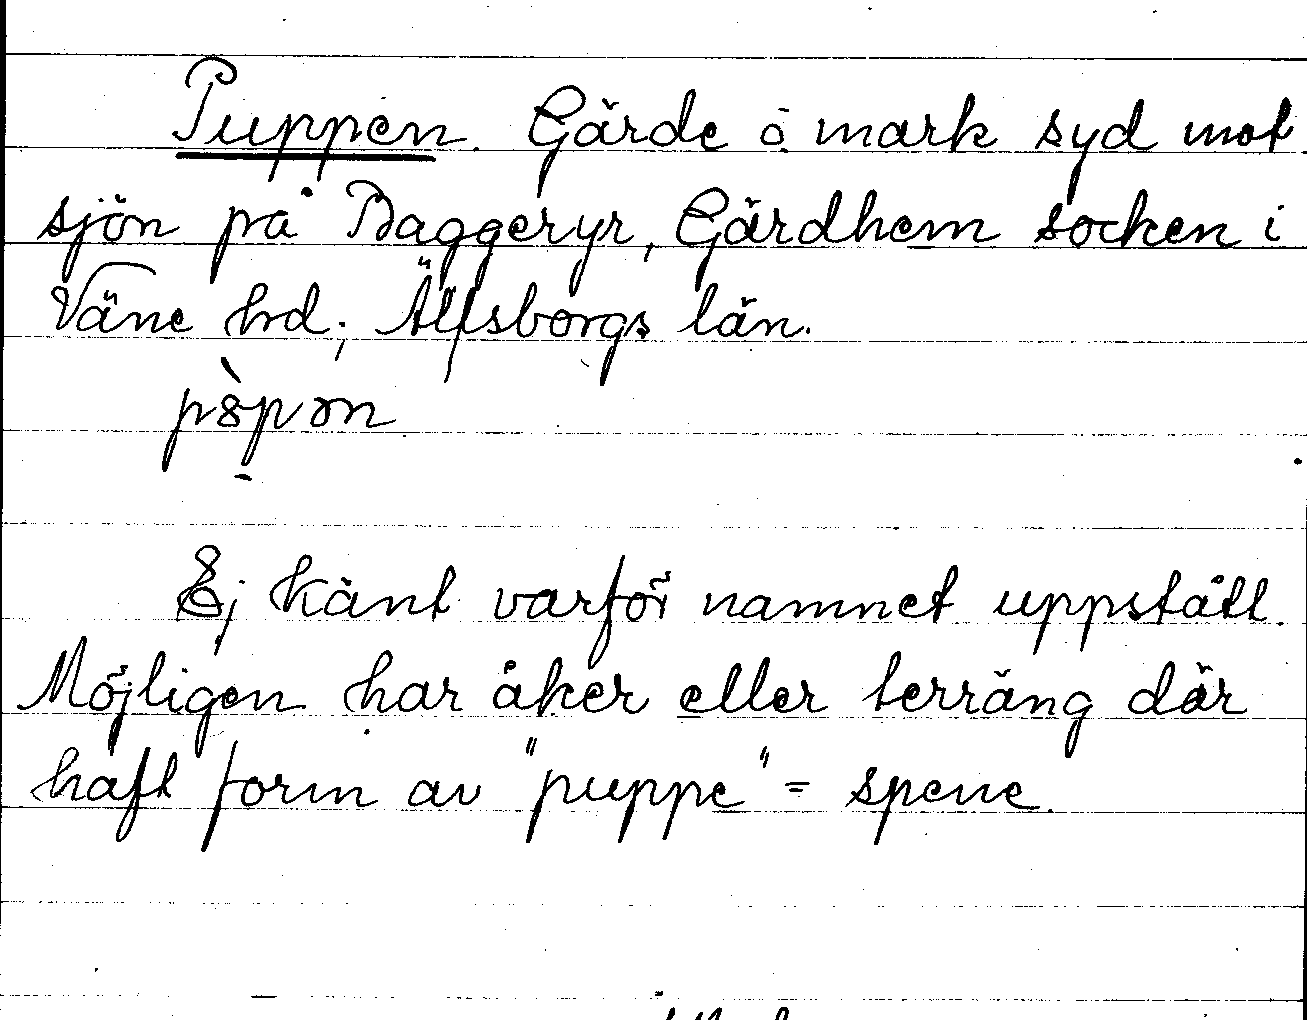 Puppen. Gärde o. mark syd mot
sjön på Baggeryr, Gärdhem socken i
Väne hrd; Älfsborgs län.
Ej känt varför namnet uppstått.
Möjligen har åker eller terräng där
haft form av "puppe" = spene.